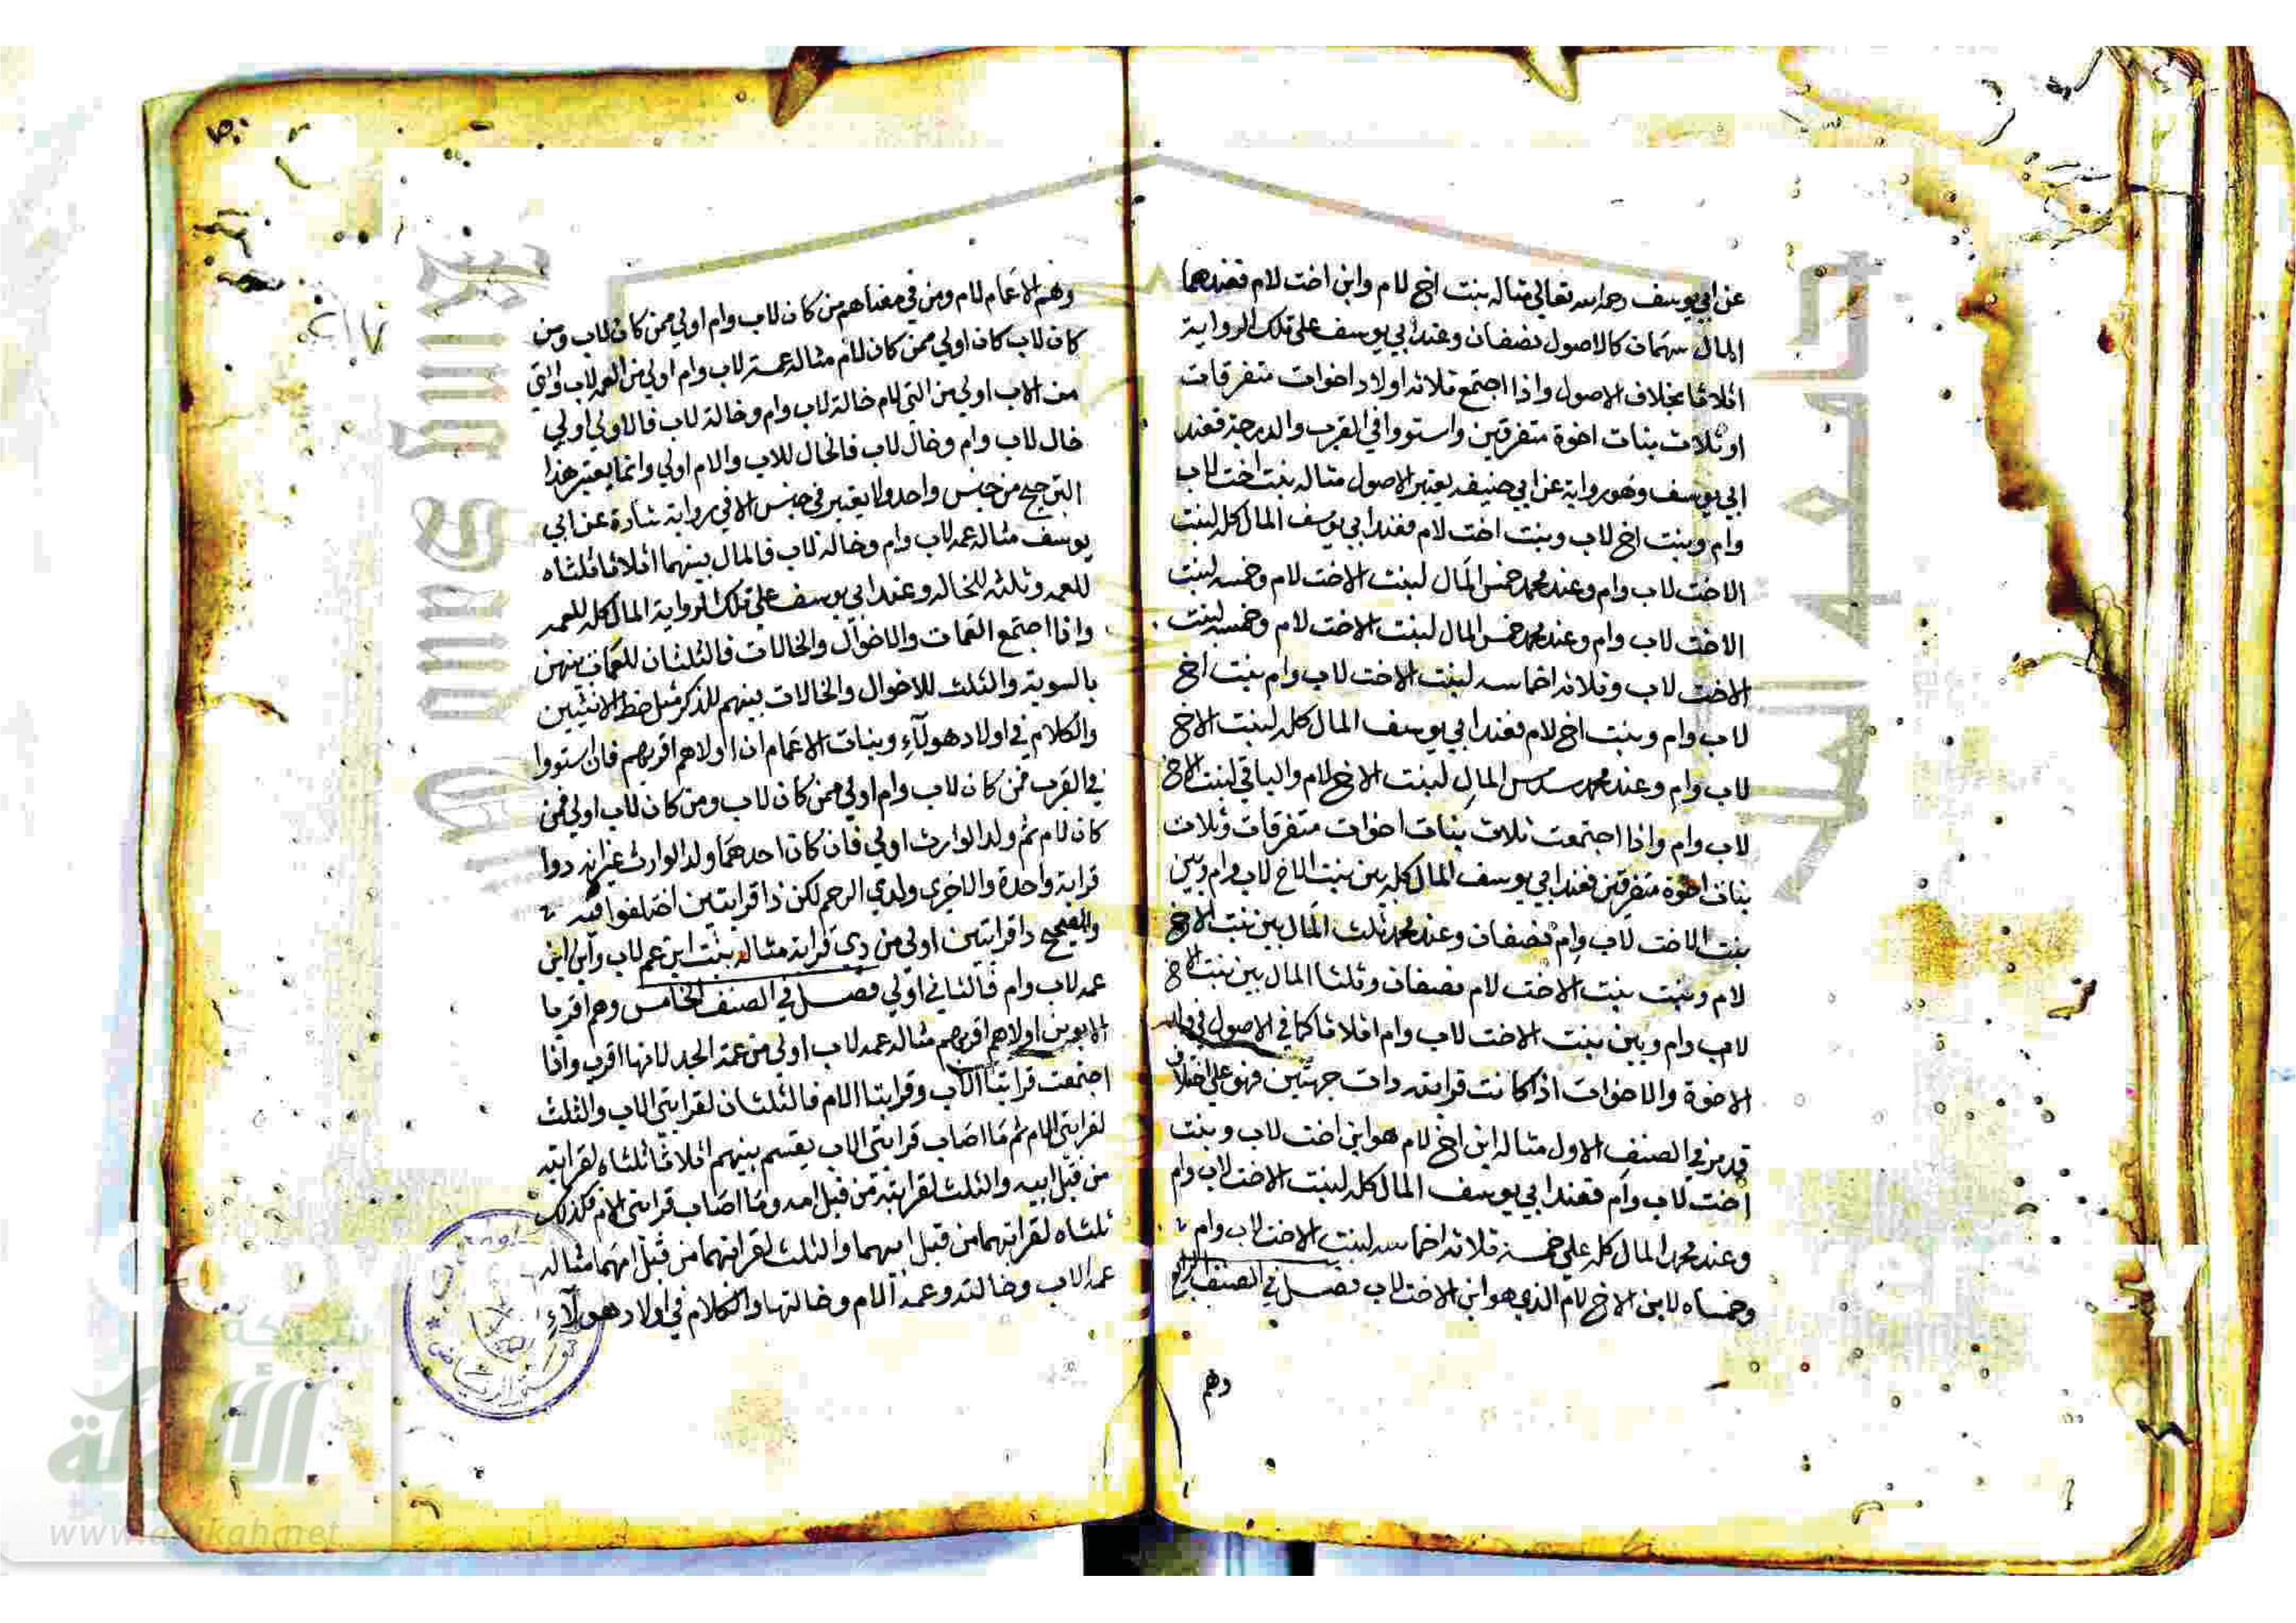 عن ابي يوسف رحمه الله تعالي مثاله بنت اخ لام وابن اخت لام فعندهما
المال سهمان كالاصول نصفان وعند ابي يوسف علي تلك الرواية
اثلاثا بخلاف الاصول واذا اجتمع ثلاثه اولاد اخوات متفرقات
او ثلاث بنات اخوة متفرقين واستووا في القرب والدرجة فعند
ابي يوسف وهو رواية عن ابي حنيفه يعتبر الاصول مثاله بنت اخت لاب
وام وبنت اخ لاب وبنت اخت لام فعند ابي يوسف المال كله لبنت
الاخت لاب وام وعند محمد خمس المال لبنت الاخت لام وخمسه لبنت
الاخت لاب وام وعند محمد خمس المال لبنت الاخت لام وخمسه لبنت
الاخت لاب وثلاثه اخماسه لبنت الاخت لاب وام بنت اخ
لاب وام وبنت اخ لام فعند ابي يوسف المال كله لبنت الاخ
لاب وام وعند محمد سدس المال لبنت الاخ لام والباقي لبنت الاخ
لاب وام واذا اجتمعت ثلاث بنات اخوات متفرقات وثلاث
بنات اخوة متفرقين فعند ابي يوسف المال كله بين بنت الاخ لاب وام وبين
بنت الاخت لاب وام نصفان وعند محمد ثلث المال بين بنت الاخ
لام وبنت بنت الاخت لام نصفان وثلثا المال بين بنت الاخ
لاب وام وبين بنت الاخت لاب وام اثلاثا كما في الاصول في
الاخوة والاخوات اذا كانت قرابته ذات جهتين فهو علي اختلاف
قد مر في الصنف الاول مثاله ابن اخ لام هو ابن اخت لاب وبنت
اخت لاب وام فعند ابي يوسف المال كله لبنت الاخت لاب وام
وعند محمد المال كله علي خمسة ثلاثه اخماسه لبنت الاخت لاب وام
وخمساه لابن الاخ لام الذي هو ابن الاخت لاب فصل في الصنف الرابع
وهم
وهم الاعمام لام ومن في معناهم من كان لاب وام اولي ممن كان لاب ومن
كان لاب كان اولي ممن كان لام مثاله عمة لاب وام اولي من العمه لاب والتي
من الاب اولي من التي لام خالة لاب وام وخالة لاب فالاولي اولي
خال لاب وام وخال لاب فالخال للاب والام اولي وانما يعتبر هذا
الترجيح من جنس واحد ولا يعتبر في جنس الا في رواية شاذة عن ابي
يوسف مثاله عمه لاب وام وخاله لاب فالمال بينهما اثلاثا ثلثاه
للعمه وثلثه للخاله وعند ابي يوسف علي تلك الرواية المال كله للعمه
واذا اجتمع العمات والاخوال والخالات فالثلثان للعمات بينهن
بالسوية والثلث للاخوال والخالات بينهم للذكر مثل حظ الانثيين
والكلام في اولاد هولآء وبنات الاعمام ان اولاهم اقربهم فان استووا
في القرب فمن كان لاب وام اولي ممن كان لاب ومن كان لاب اولي ممن
كان لام ثم ولد الوارث اولي فان كان احدهما ولد الوارث غير انه ذوا
قرابة واحدة والاخري ولد ذي الرحم لكن ذا قرابتين اختلفوا فيه
والصحيح ذا قرابتين اولي من ذي قرابة مثاله بنت ابن عم لاب وابن ابن
عمه لاب وام فالثاني اولي فصل في الصنف الخامس وهم اقربا
الابوين اولاهم اقربهم مثاله عمه لاب اولي من عمة الجد لانها اقرب واذا
اجتمعت قرابتا الاب وقرابتا الام فالثلثان لقرابتي الاب والثلث
لقرابتي الام ثم ما اصاب قرابتي الاب يقسم بينهم اثلاثا ثلثاه لقرابته
من قبل ابيه والثلث لقرابته من قبل امه وما اصاب قرابتي الام فكذلك
ثلثاه لقرابتهما من قبل ابيهما والثلث لقرابتهما من قبل امهما مثاله
عمة الاب وخالته وعمة الام وخالتها والكلام في اولاد هولآء
شبكة
الألوكة
www.alukah.net